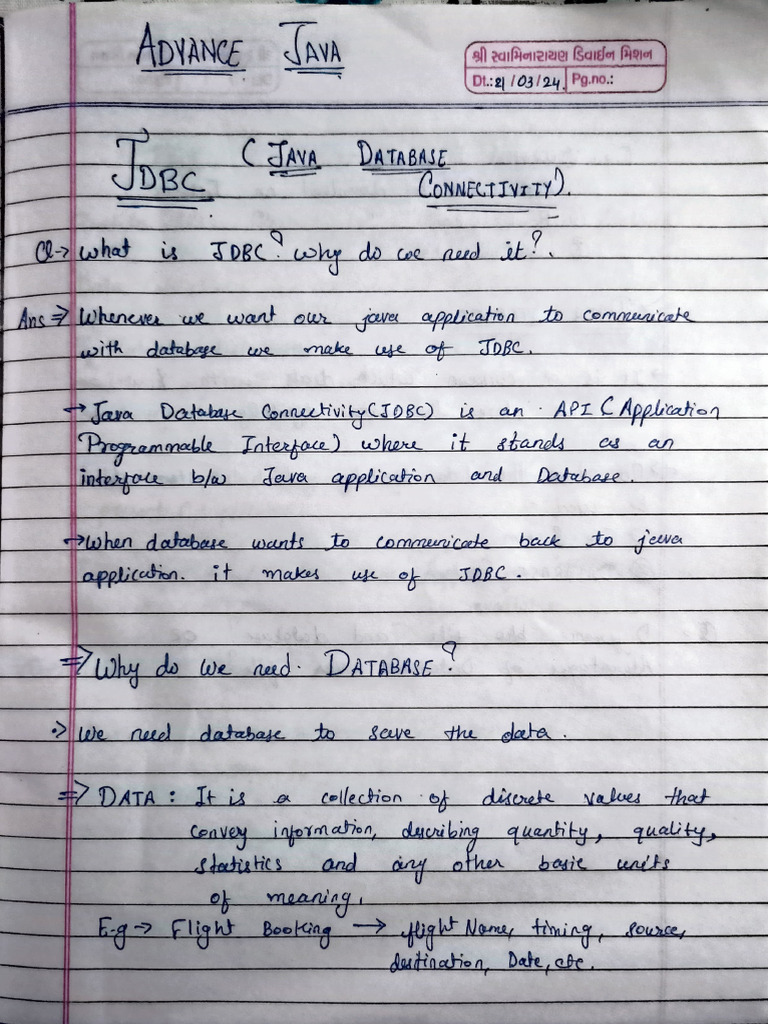 ADVANCE JAVA
શ્રી સ્વામિનારાયણ ડિવાઈન મિશન
Dt.: 21/03/24 Pg.no.:
JDBC (JAVA DATABASE
CONNECTIVITY).
Q→ What is JDBC? why do we need it?.
Ans ⇒ Whenever we want our java application to communicate
with database we make use of JDBC.
→ Java Database Connectivity(JDBC) is an API (Application
Programmable Interface) where it stands as an
interface b/w Java application and Database.
→ When database wants to communicate back to java
application. it makes use of JDBC.
⇒ Why do we need. DATABASE?
:> We need database to save the data.
⇒ DATA : It is a collection of discrete values that
convey information, describing quantity, quality,
statistics and any other basic units
of meaning.
E-g → Flight Booking → flight Name, timing, source,
destination, Date, etc.